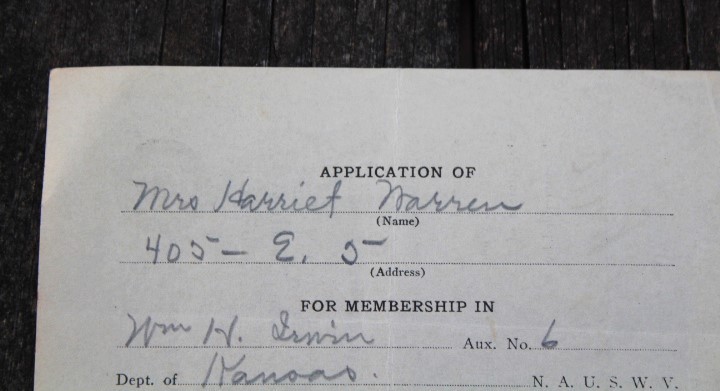 APPLICATION OF
Mrs Harriet Warren
(Name)
405 - E. 5
(Address)
FOR MEMBERSHIP IN
Wm H. Irwin Aux. No. 6
Dept. of Kansas. N. A. U. S. W. V.